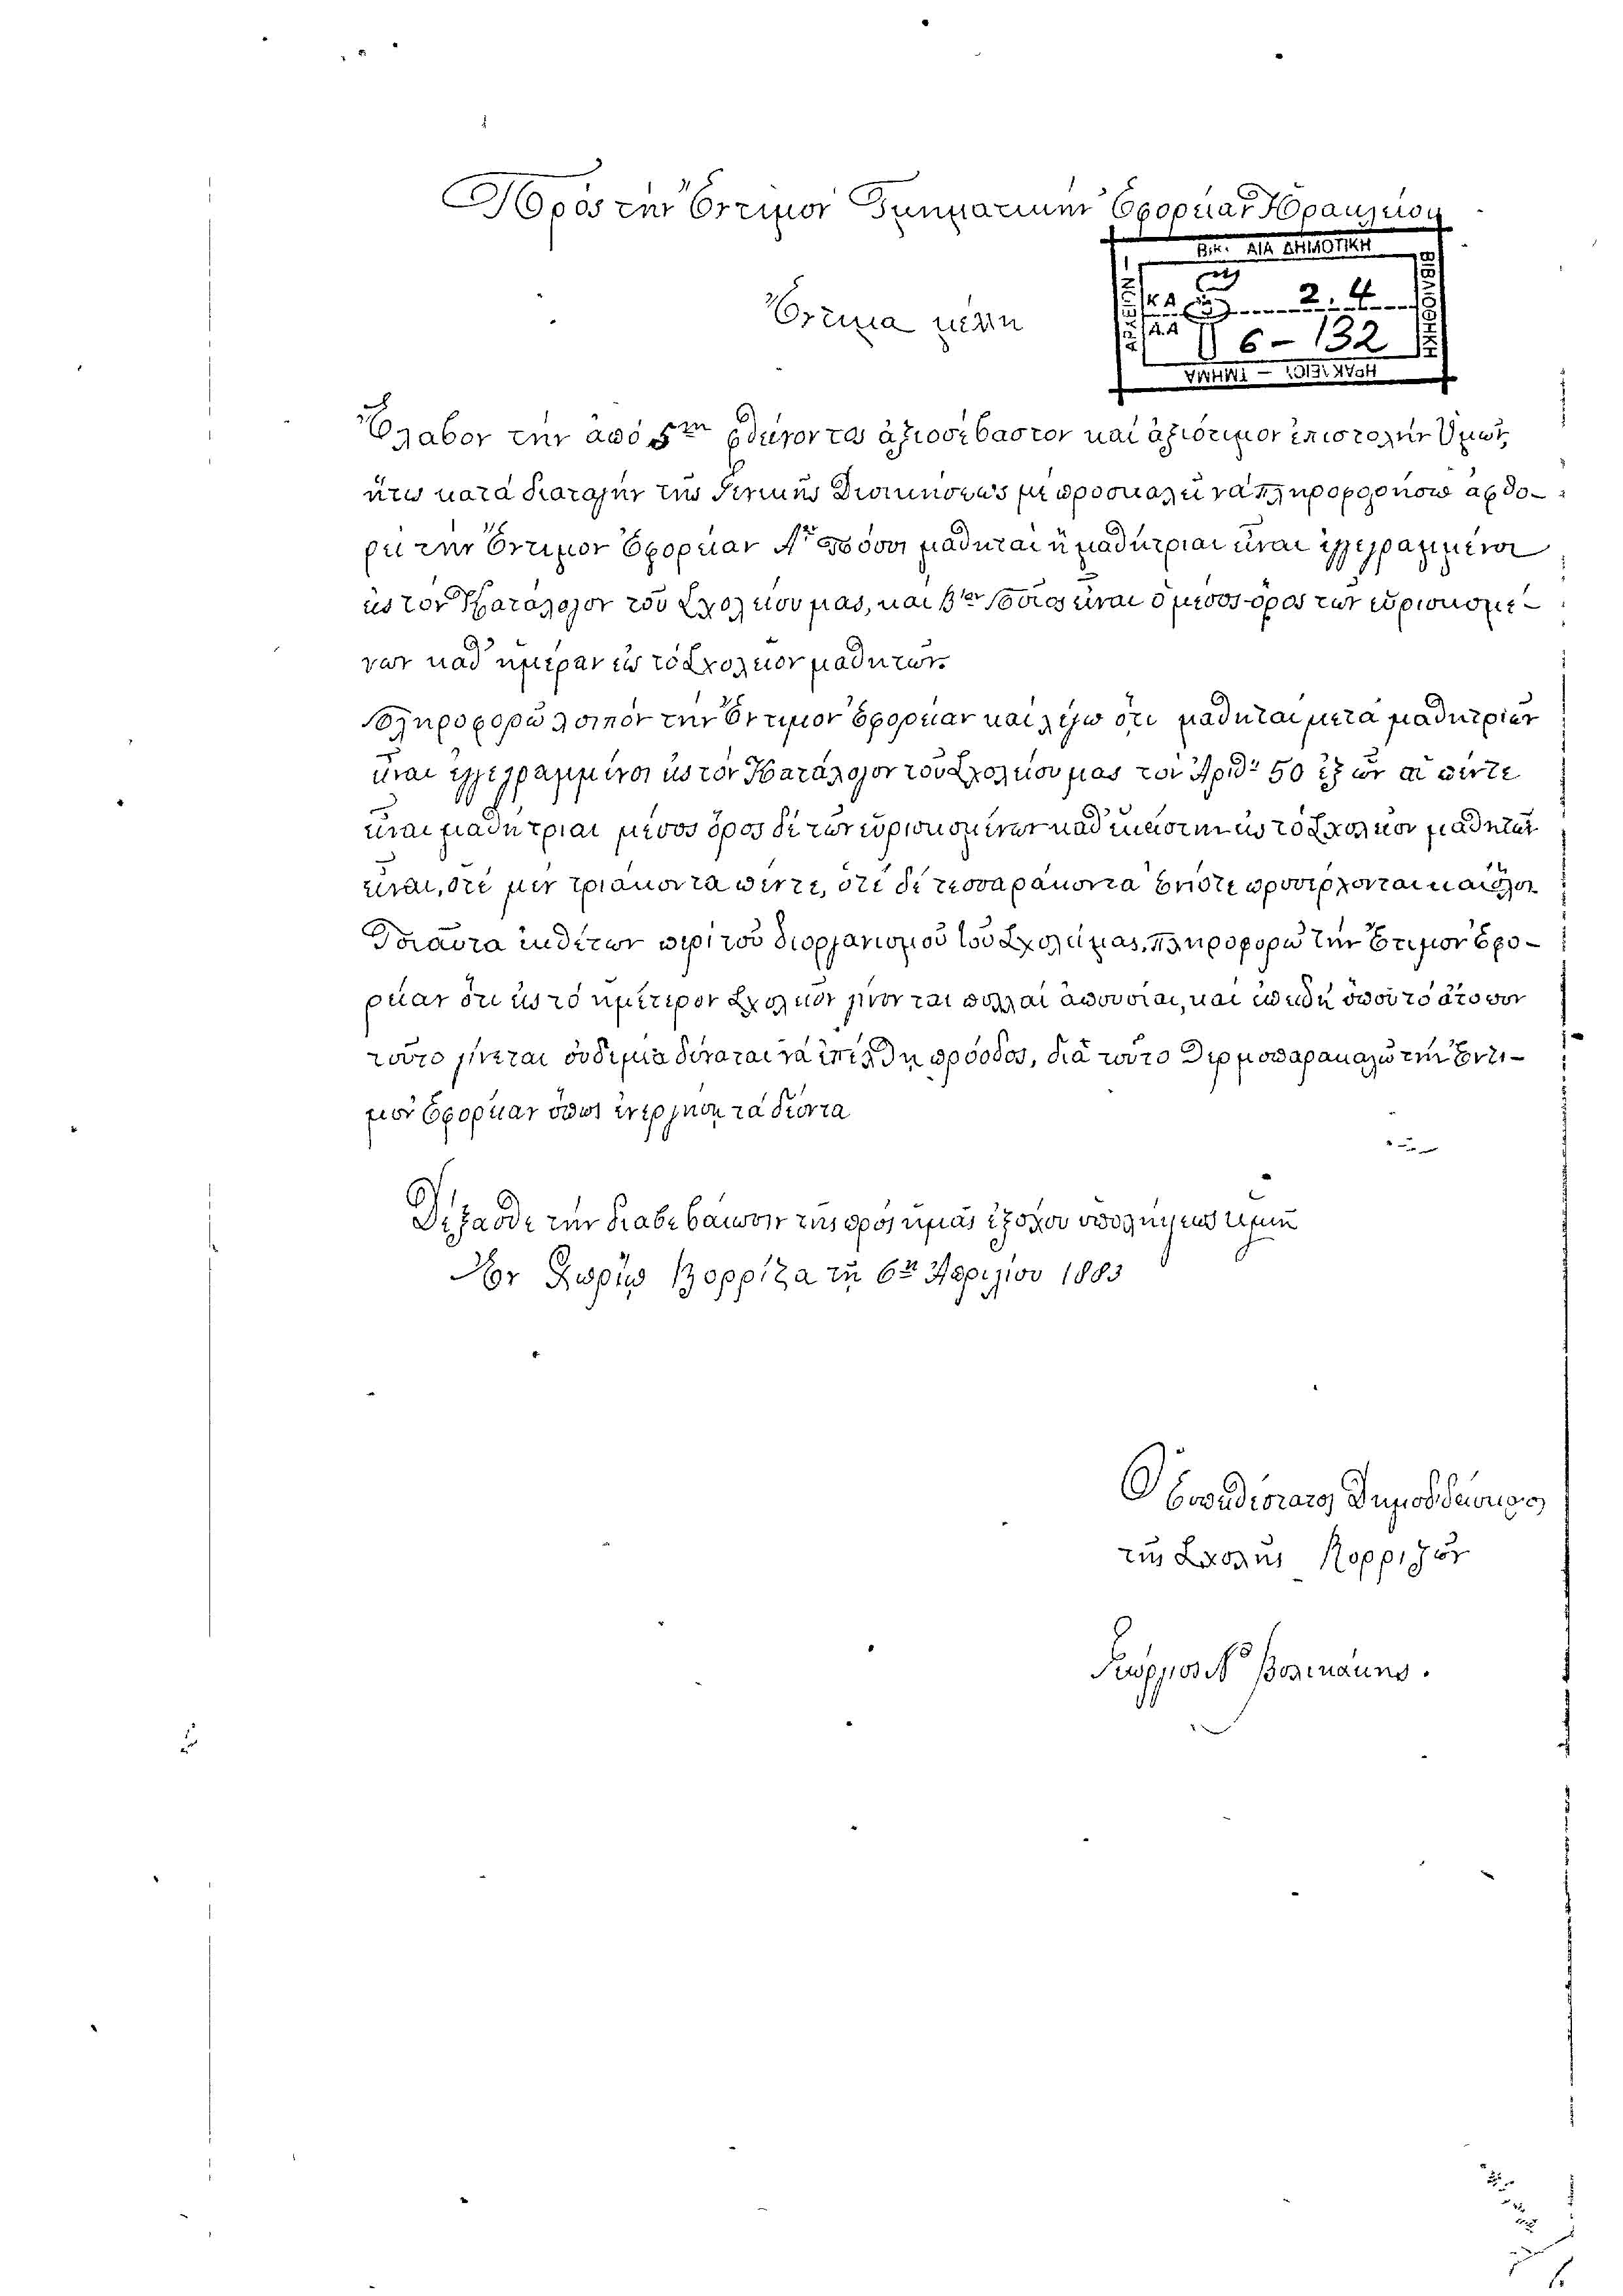 Πρὸς τὴν Ἔντιμον Δημματικὴν Ἐφορείαν Ἡρακλείου
ΒΙΚΕΛΑΙΑ ΔΗΜΟΤΙΚΗ
ΒΙΒΛΙΟΘΗΚΗ
2.4
6-132
ΗΡΑΚΛΕΙΟΥ – ΤΜΗΜΑ
Ἔντιμα μέλη
Ἔλαβον τὴν ἀπὸ 5ην φθίνοντος ἀξιοσέβαστον καὶ ἀξιότιμον ἐπιστολὴν Ὑμῶν,
ἥτις κατὰ διαταγὴν τῆς Γενικῆς Διοικήσεως μὲ προσκαλεῖ νὰ πληροφορήσω
τὴν Ἔντιμον Ἐφορείαν Αον Πόσοι μαθηταὶ ἢ μαθήτριαι εἶναι ἐγγεγραμμένοι
εἰς τὸν Κατάλογον τοῦ Σχολείου μας, καὶ βον Ποῖος εἶναι ὁ μέσος ὅρος τῶν εὑρισκομέ-
νων καθ' ἡμέραν εἰς τὸ Σχολεῖον μαθητῶν.
Πληροφορῶ λοιπὸν τὴν Ἔντιμον Ἐφορείαν καὶ λέγω ὅτι μαθηταὶ μετὰ μαθητριῶν
εἶναι ἐγγεγραμμένοι εἰς τὸν Κατάλογον τοῦ Σχολείου μας τὸν Ἀριθν 50 ἐξ ὧν αἱ πέντε
εἶναι μαθήτριαι μέσος ὅρος δὲ τῶν εὑρισκομένων καθ' ἑκάστην εἰς τὸ Σχολεῖον μαθητῶν
εἶναι, ὁτὲ μὲν τριάκοντα πέντε, ὁτὲ δὲ τεσσαράκοντα ἐνίοτε προσέρχονται καὶ ὅλοι.
Τοιαῦτα ἐκθέτων περὶ τοῦ διοργανισμοῦ τοῦ Σχολεί μας, πληροφορῶ τὴν Ἔτιμον Ἐφο-
ρείαν ὅτι εἰς τὸ ἡμέτερον Σχολεῖον γίνονται πολλαὶ ἀπουσίαι, καὶ ἐπειδὴ ὁποῦ τὸ ἄτοπον
τοῦτο γίνεται οὐδεμία δύναται νὰ ἐπέλθῃ πρόοδος, διὰ τοῦτο θερμοπαρακαλῶ τὴν Ἔντι-
μον Ἐφορείαν ὅπως ἐνεργήσῃ τὰ δέοντα
Δέξασθε τὴν διαβεβαίωσιν τῆς πρὸς ὑμᾶς ἐξόχου ὑπολήψεως
Ἐν Χωρίῳ Βορρίζα τῇ 6ῃ Ἀπριλίου 1883
Ὁ Εὐπειθέστατος Δημοδιδάσκαλος
τῆς Σχολῆς Βορριζῶν
Γεώργιος Ν